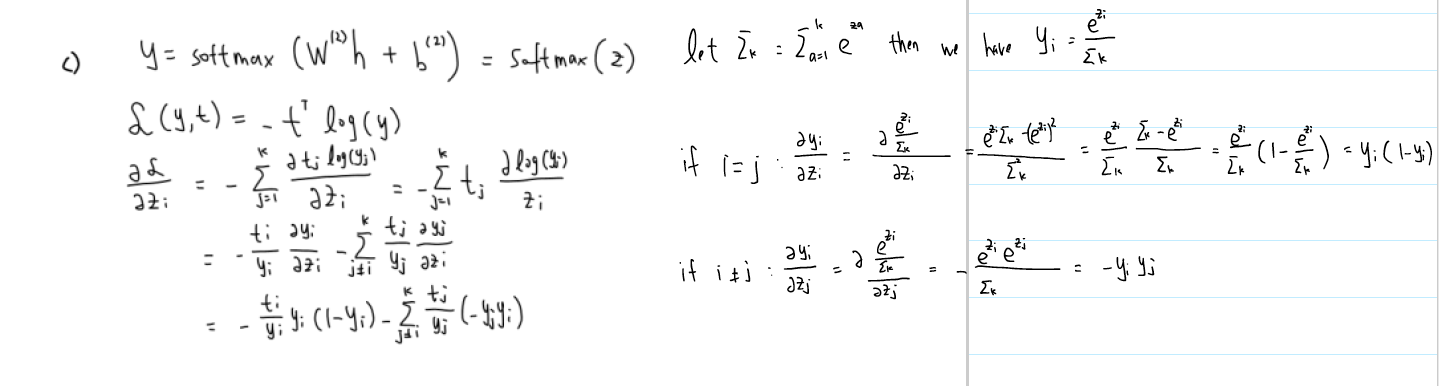 c) y = softmax (W^(2) h + b^(2)) = Softmax(z)
L(y,t) = - t^T log(y)
∂L/∂z_i = - Σ_{j=1}^{k} ∂ t_j log(y_j) / ∂z_i = - Σ_{j=1}^{k} t_j ∂ log(y_j) / z_i
= - t_i/y_i ∂y_i/∂z_i - Σ_{j≠i}^{k} t_j/y_j ∂y_j/∂z_i
= - t_i/y_i y_i (1-y_i) - Σ_{j≠i}^{k} t_j/y_j (-y_j y_i)
let Σ_k = Σ_{a=1}^{k} e^{z_a} then we have y_i = e^{z_i}/Σ_k
if i=j : ∂y_i/∂z_i = ∂ (e^{z_i}/Σ_k) / ∂z_i = (e^{z_i} Σ_k - (e^{z_i})^2) / Σ_k^2 = e^{z_i}/Σ_k (Σ_k - e^{z_i})/Σ_k = e^{z_i}/Σ_k (1 - e^{z_i}/Σ_k) = y_i (1-y_i)
if i≠j : ∂y_i/∂z_j = ∂ (e^{z_i}/Σ_k) / ∂z_j = - e^{z_i} e^{z_j} / Σ_k = -y_i y_j